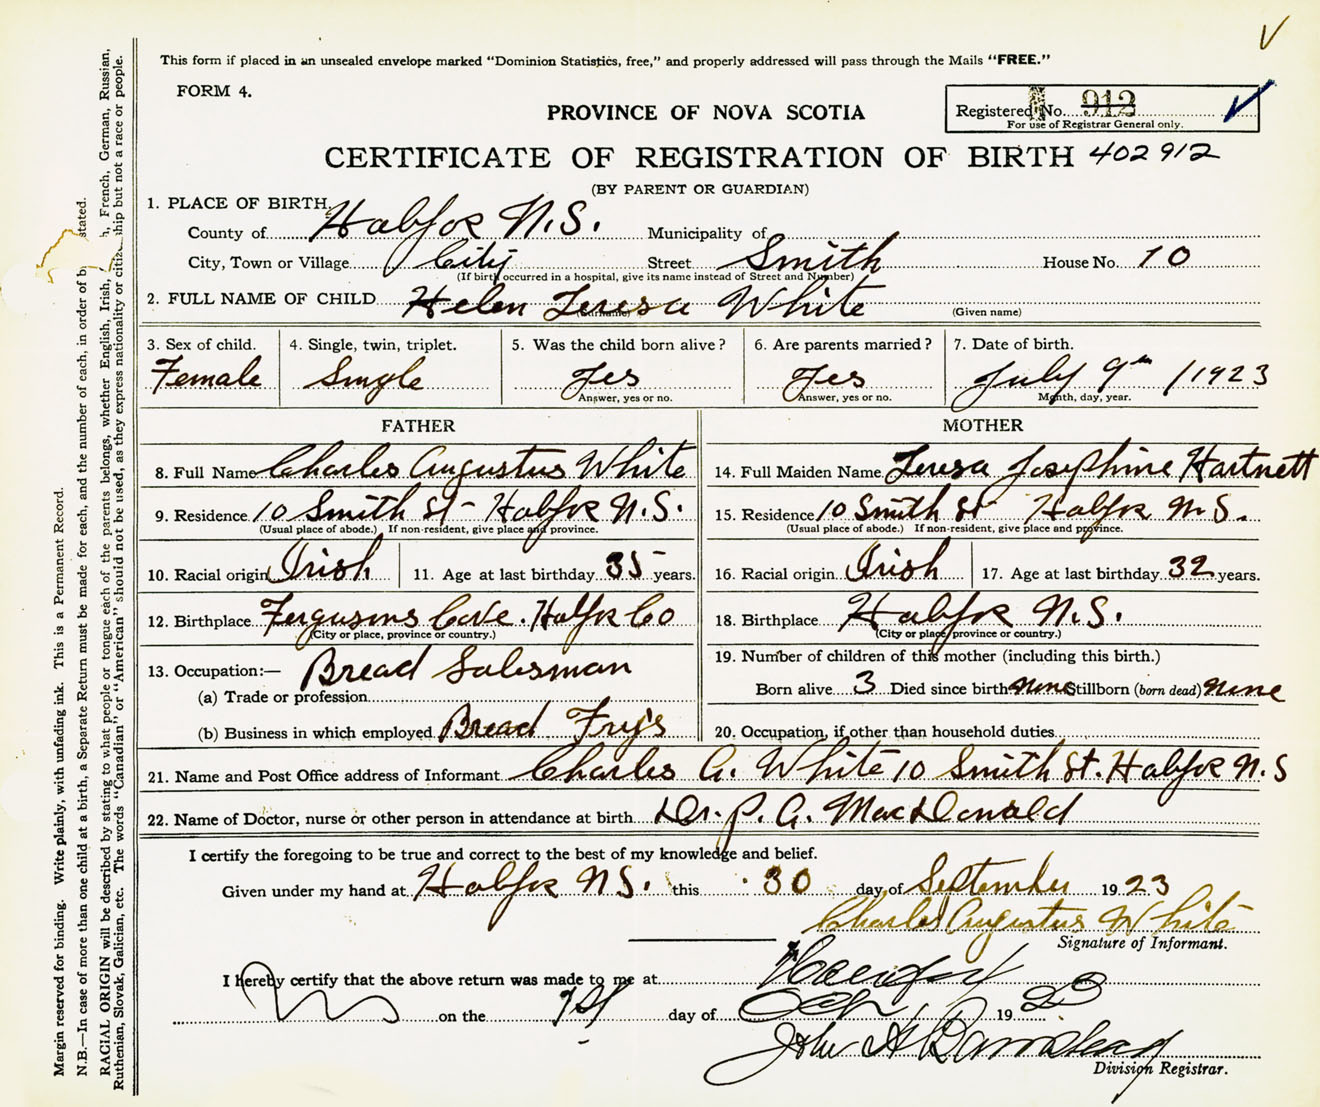 This form if placed in an unsealed envelope marked "Dominion Statistics, free," and properly addressed will pass through the Mails "FREE."
FORM 4.
Registered No. 912
For use of Registrar General only.
PROVINCE OF NOVA SCOTIA
CERTIFICATE OF REGISTRATION OF BIRTH 402912
(BY PARENT OR GUARDIAN)
1. PLACE OF BIRTH.
County of Halifax N.S. Municipality of
City, Town or Village City Street Smith House No. 10
(If birth occurred in a hospital, give its name instead of Street and Number)
2. FULL NAME OF CHILD Helen Teresa White
(Surname) (Given name)
3. Sex of child. 4. Single, twin, triplet. 5. Was the child born alive? 6. Are parents married? 7. Date of birth.
Female Single Yes Yes July 9th /1923
Answer, yes or no. Answer, yes or no. Month, day, year.
FATHER
8. Full Name Charles Augustus White
9. Residence 10 Smith St - Halifax N.S.
(Usual place of abode.) If non-resident, give place and province.
10. Racial origin Irish 11. Age at last birthday 35 years.
12. Birthplace Fergusons Cove. Halfx Co
(City or place, province or country.)
13. Occupation:— Bread Salesman
(a) Trade or profession
(b) Business in which employed Bread
MOTHER
14. Full Maiden Name Teresa Josephine Hartnett
15. Residence 10 Smith St Halifax N.S.
(Usual place of abode.) If non-resident, give place and province.
16. Racial origin Irish 17. Age at last birthday 32 years.
18. Birthplace Halifax N.S.
(City or place, province or country.)
19. Number of children of this mother (including this birth.)
Born alive 3 Died since birth none Stillborn (born dead) none
20. Occupation, if other than household duties
21. Name and Post Office address of Informant Charles A. White 10 Smith St. Halifax N.S
22. Name of Doctor, nurse or other person in attendance at birth Dr. P. A. MacDonald
I certify the foregoing to be true and correct to the best of my knowledge and belief.
Given under my hand at Halifax N.S. this 30 day of September 1923
Charles Augustus White
Signature of Informant.
I hereby certify that the above return was made to me at
on the 1st day of Oct 1923
John A Barnstead
Division Registrar.
Margin reserved for binding. Write plainly, with unfading ink. This is a Permanent Record.
N.B.—In case of more than one child at a birth, a Separate Return must be made for each, and the number of each, in order of stated.
RACIAL ORIGIN will be described by stating to what people or tongue each of the parents belongs, whether English, Irish, French, German, Russian,
Ruthenian, Slovak, Galician, etc. The words "Canadian" or "American" should not be used, as they express nationality or but not a race or people.